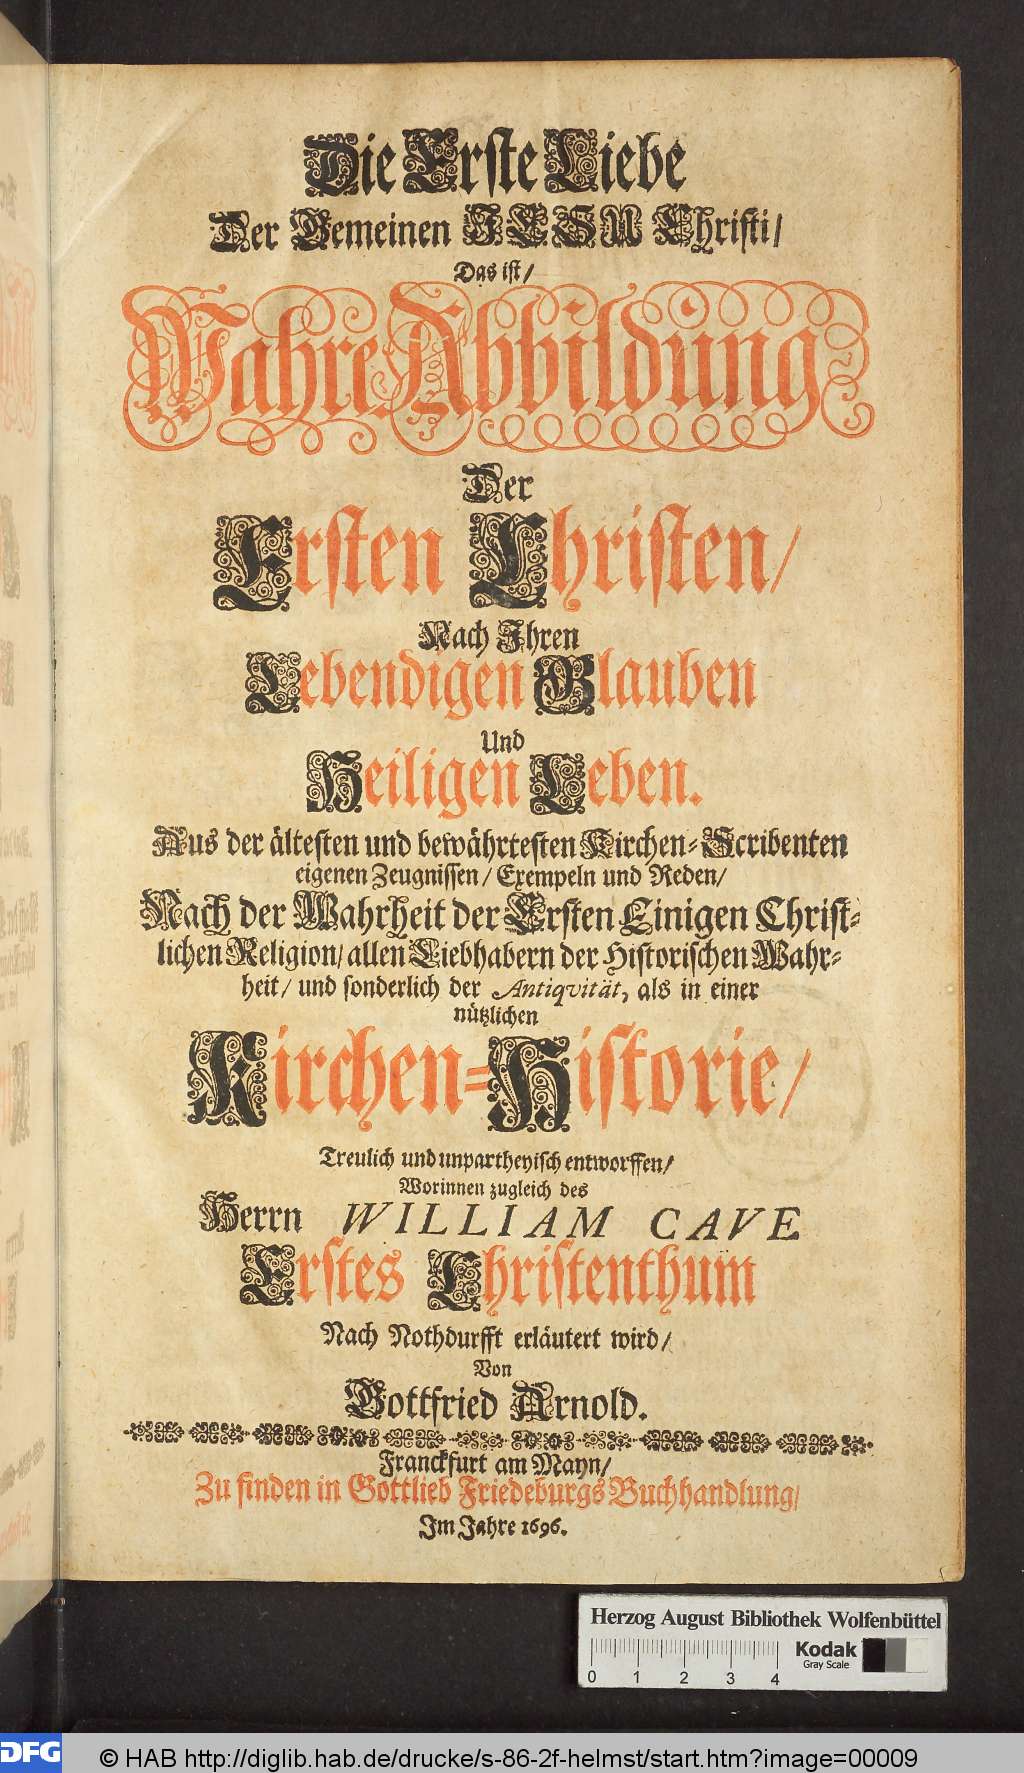 Die Erste Liebe
Der Gemeinen JESU Christi/
Das ist/
Wahre Abbildung
Der
Ersten Christen/
Nach Ihren
Lebendigen Glauben
Und
Heiligen Leben.
Aus der ältesten und bewährtesten Kirchen-Scribenten
eigenen Zeugnissen/ Exempeln und Reden/
Nach der Wahrheit der Ersten Einigen Christ-
lichen Religion/ allen Liebhabern der Historischen Wahr-
heit/ und sonderlich der Antiqvität, als in einer
nützlichen
Kirchen-Historie/
Treulich und unpartheyisch entworffen/
Worinnen zugleich des
Herrn WILLIAM CAVE
Erstes Christenthum
Nach Nothdurfft erläutert wird/
Von
Gottfried Arnold.
Franckfurt am Mayn/
Zu finden in Gottlieb Friedeburgs Buchhandlung/
Im Jahre 1696.
Herzog August Bibliothek Wolfenbüttel
Kodak
Gray Scale
0 1 2 3 4
DFG © HAB http://diglib.hab.de/drucke/s-86-2f-helmst/start.htm?image=00009